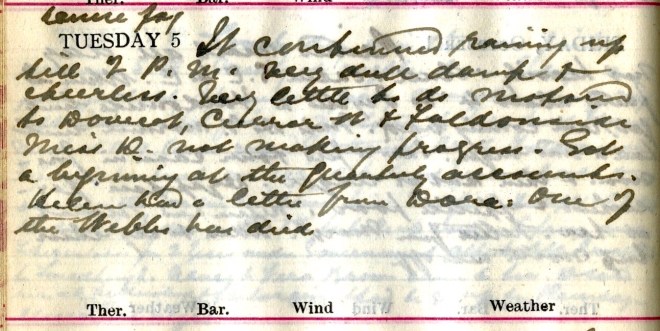 Ther. Bar. Wind
TUESDAY 5 It continued raining up
till 7 P.M. Very dull damp &
cheerless. Very little to do motored
to Dovecot, Currar N. &
Miss D. not making progress. Got
a begining at the quarterly accounts.
Helen had a letter from Dora: One of
the Webbs has died
Ther. Bar. Wind Weather